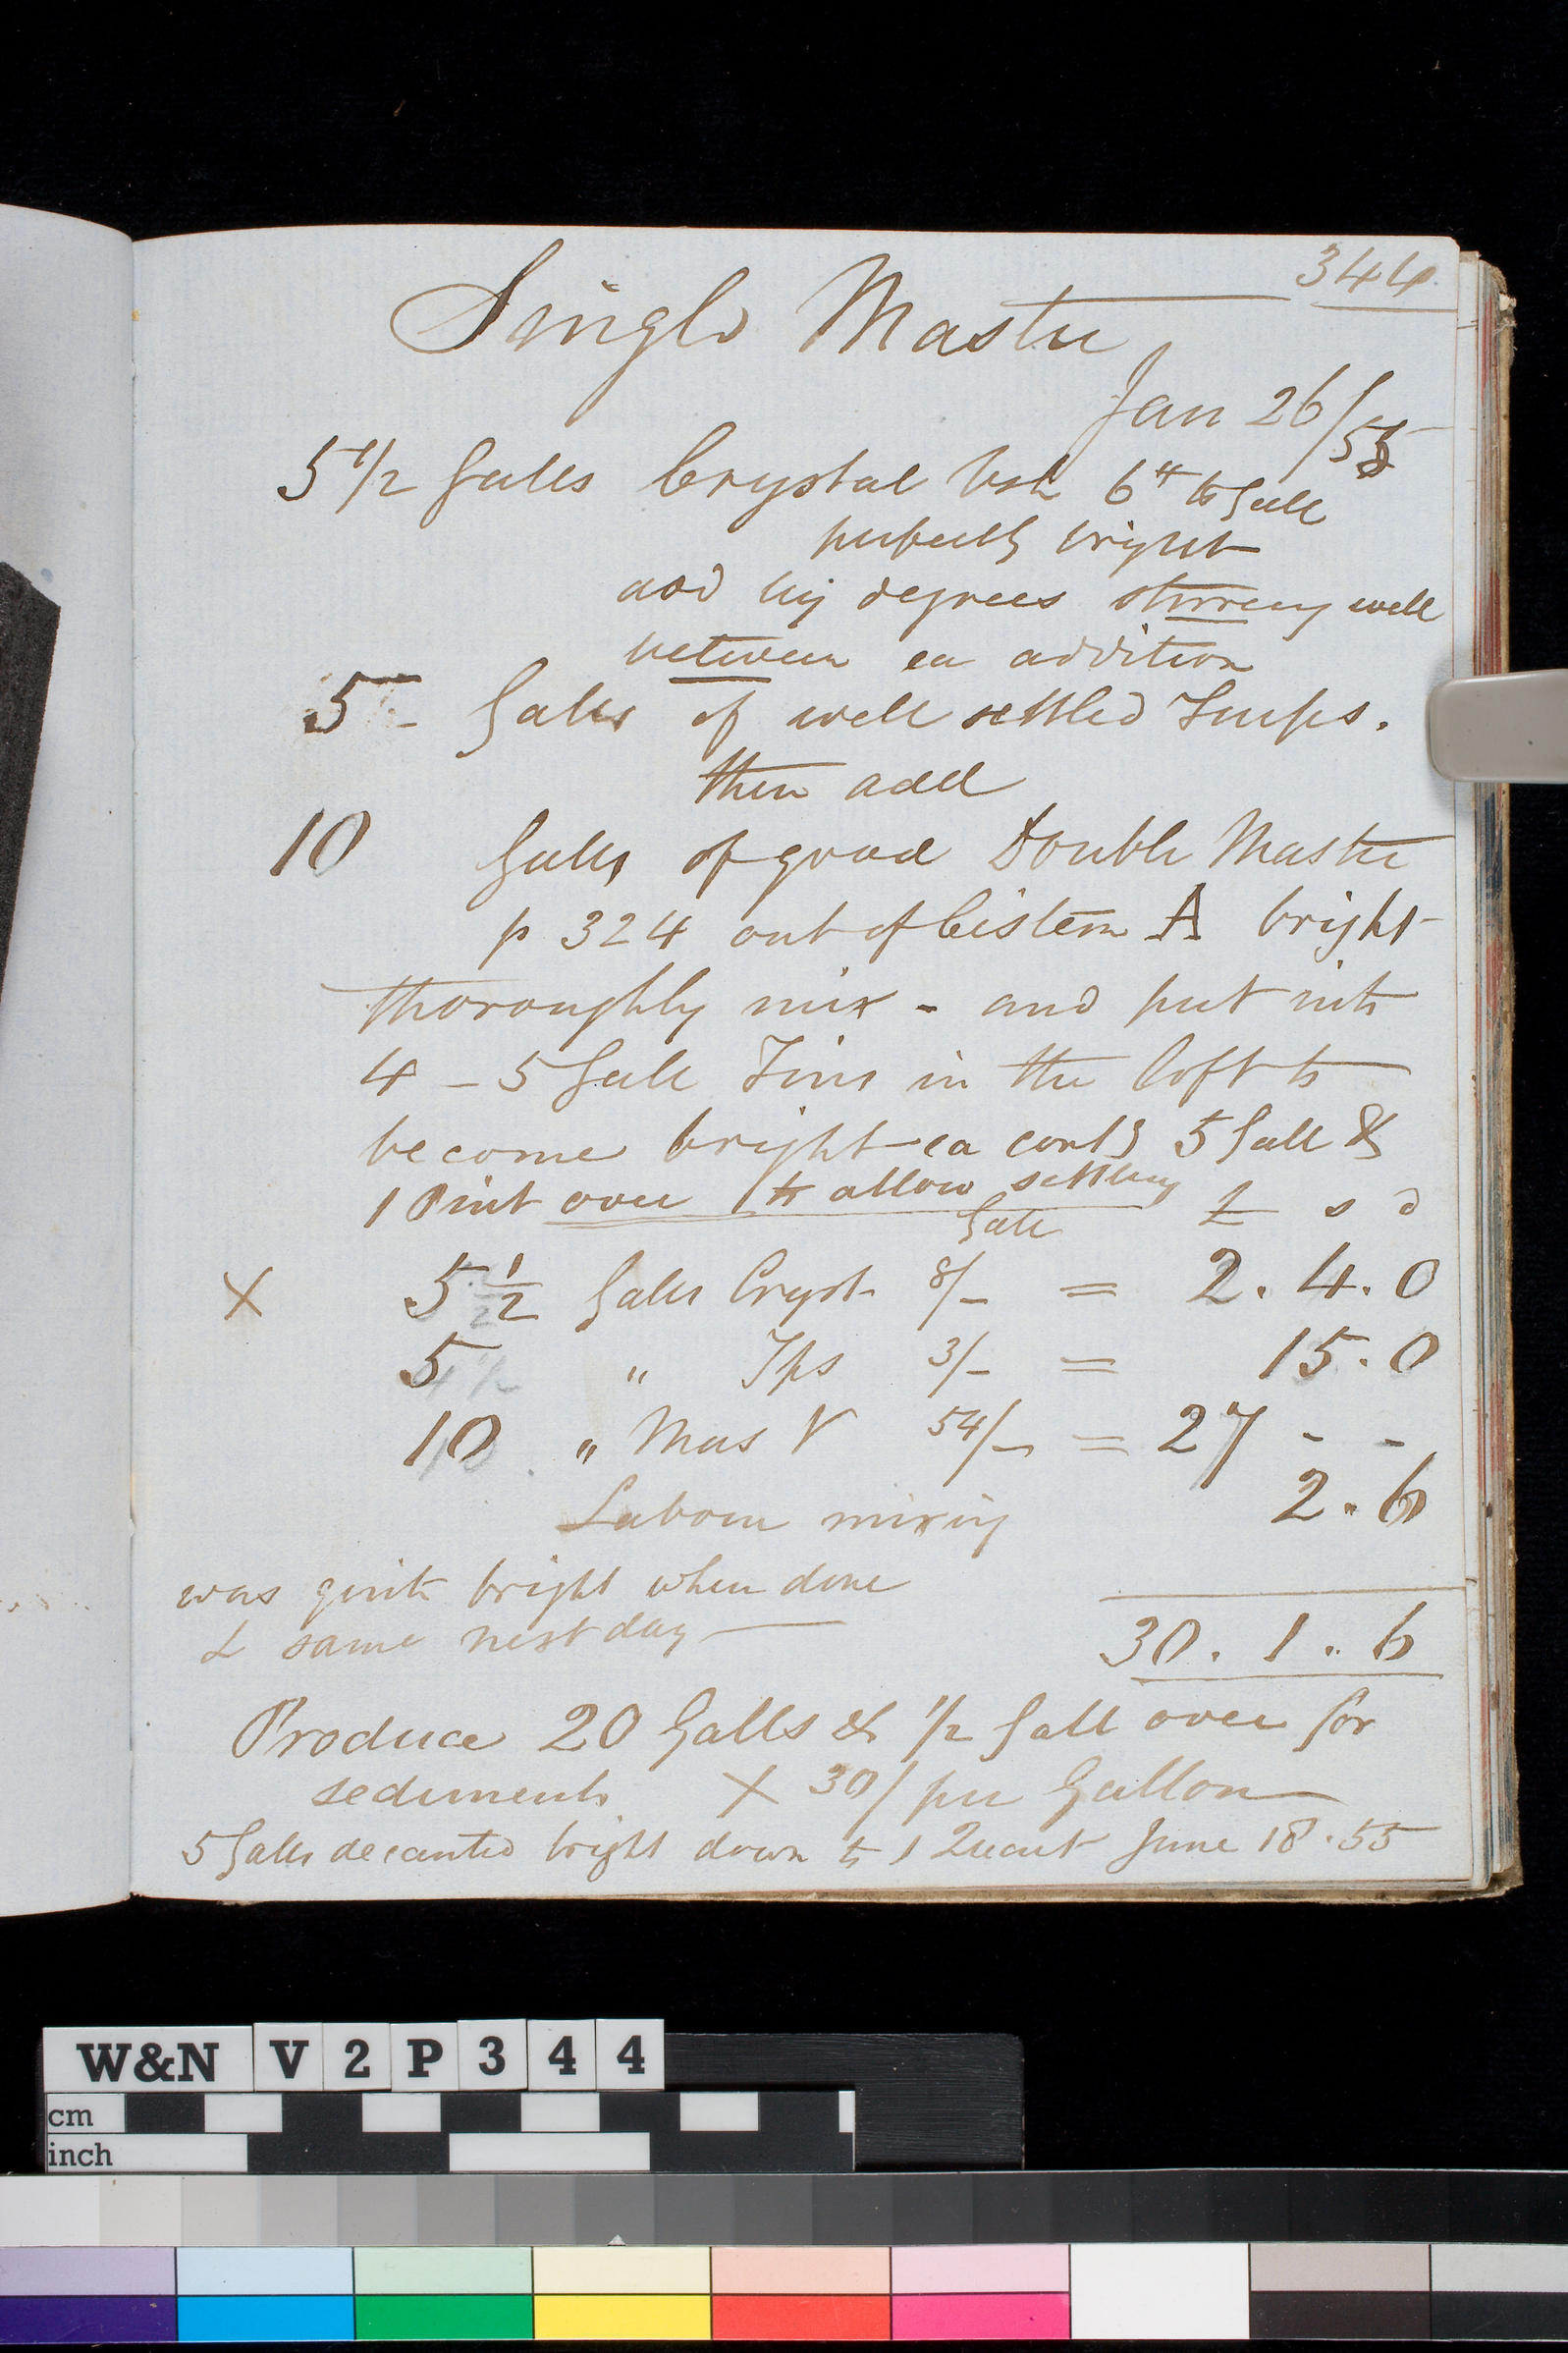 344
Single Mastic
Jan 26/55
5 1/2 Galls Crystal Vsh 6lb to Gall
perfectly bright
add by degrees stirring well
between ea addition
5 - Galls of well settled Turps.
then add
10 Galls of good Double Mastic
p 324 out of Cistern A bright
thoroughly mix - and put into
4 - 5 Gall Tins in the loft to
become bright ea contg 5 Gall &
1 Pint over to allow settling
Gall £ s d
X 5 1/2 Galls Cryst 8/- = 2.4.0
5 " Tps 3/- = 15.0
10 " Mas V 54/- = 27 - -
Labour mixing 2.6
was quite bright when done
& same next day
30.1.6
Produce 20 Galls & 1/2 Gall over for
sediments X 30/ per Gallon
5 Galls decanted bright down to 1 Quart June 18.55
W&N V2P344
cm
inch